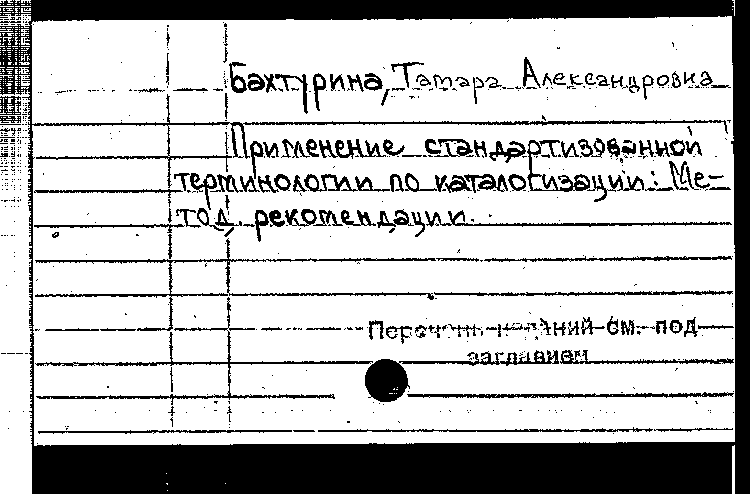 Бахтурина, Тамара Александровна
Применение стандартизованной
терминологии по каталогизации: Ме-
тод. рекомендации.
Перечень изданий см. под
заглавием